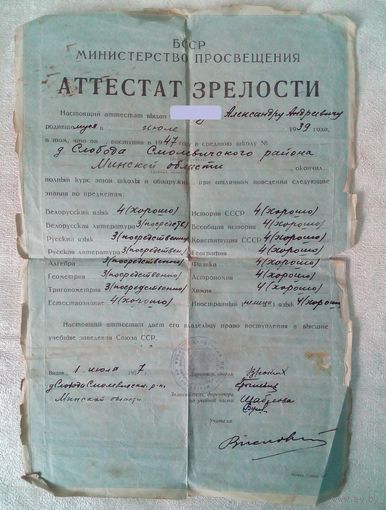 БССР
МИНИСТЕРСТВО ПРОСВЕЩЕНИЯ
АТТЕСТАТ ЗРЕЛОСТИ
Настоящий аттестат выдан Александру Андреевичу
родившемуся в июле 1939 года,
в том, что он поступив в 1947 году в среднюю школу №
д. Слобода Смолевичского района
Минской области окончил
полный курс этой школы и обнаружил, при отличном поведении следующие
знания по предметам:
Белорусский язык 4 (хорошо)
Белорусская литература 3 (посредств)
Русский язык 3 (посредственно)
Русская литература 3 (посредствен)
Алгебра 3 (посредственно)
Геометрия 3 (посредственно)
Тригонометрия 3 (посредственно)
Естествознание 4 (хорошо)
История СССР 4 (хорошо)
Всеобщая история 4 (хорошо)
Конституция СССР 4 (хорошо)
География 4 (хорошо)
Физика 4 (хорошо)
Астрономия 4 (хорошо)
Химия 4 (хорошо)
Иностранный (немецк) язык 4 (хорош
Настоящий аттестат дает его владельцу право поступления в высшие
учебные заведения Союза ССР.
Выдан 1 июля 7
д. Слобода Смолевичск. р-н
Минской области
Директор школы
Заместитель директора
учебной части
Учителя: